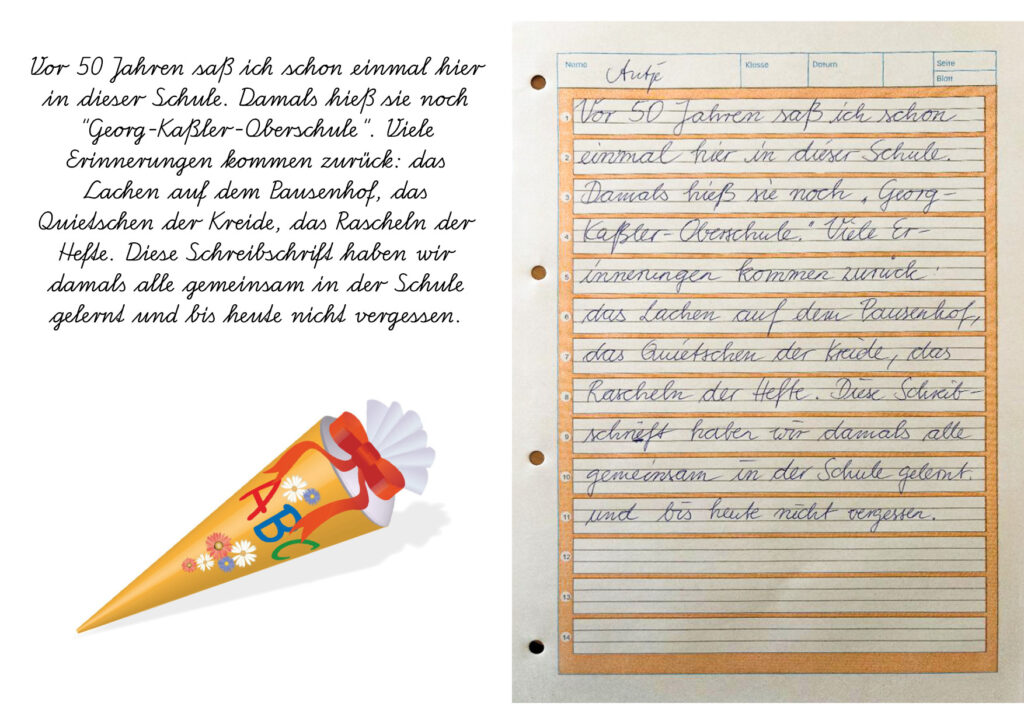 Vor 50 Jahren saß ich schon einmal hier
in dieser Schule. Damals hieß sie noch
"Georg-Kaßler-Oberschule". Viele
Erinnerungen kommen zurück: das
Lachen auf dem Pausenhof, das
Quietschen der Kreide, das Rascheln der
Hefte. Diese Schreibschrift haben wir
damals alle gemeinsam in der Schule
gelernt und bis heute nicht vergessen.
ABC
Name Antje Klasse Datum Seite
Blatt
1 Vor 50 Jahren saß ich schon
2 einmal hier in dieser Schule.
3 Damals hieß sie noch „Georg-
4 Kaßler-Oberschule." Viele Er-
5 innerungen kommen zurück:
6 das Lachen auf dem Pausenhof,
7 das Quietschen der Kreide, das
8 Rascheln der Hefte. Diese Schreib-
9 schrift haben wir damals alle
10 gemeinsam in der Schule gelernt.
11 und bis heute nicht vergessen.
12
13
14